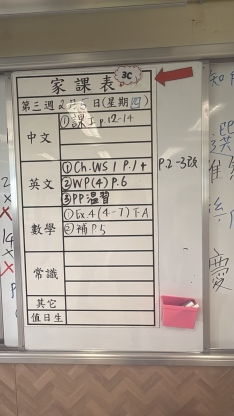 家課表
3C
第三週 2月5日(星期四)
中文
①課工 p.12-14
英文
①Ch.WS 1 P.14
②WP(4) P.6
③PP溫習
P.2-3改
數學
①Ex.4(4-7)下A
②補P5
常識
其它
值日生
慶